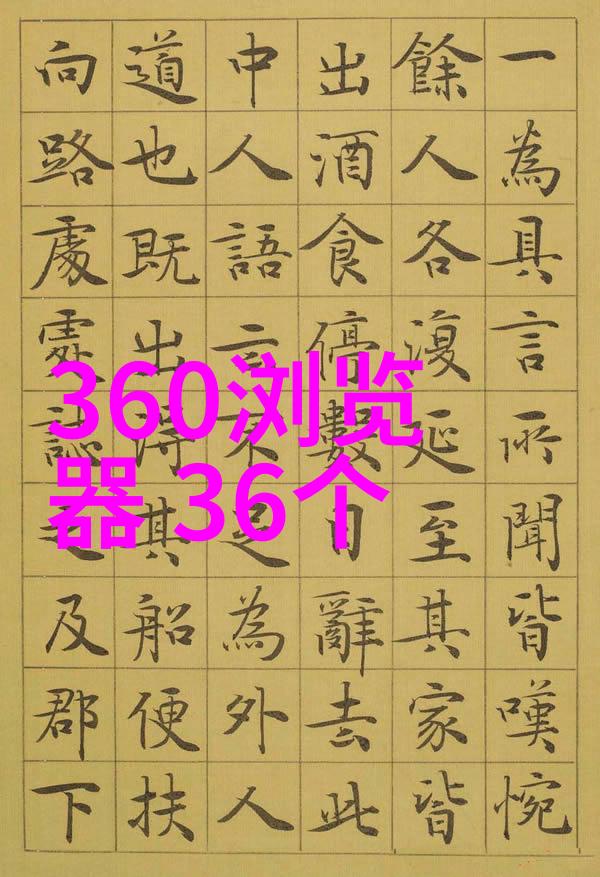 一為具言所聞皆嘆惋
餘人各復延至其家皆
出酒食停數日辭去此
中人語云不足為外人
道也既出得其船便扶
向路處處誌之及郡下
360浏览
器 36个